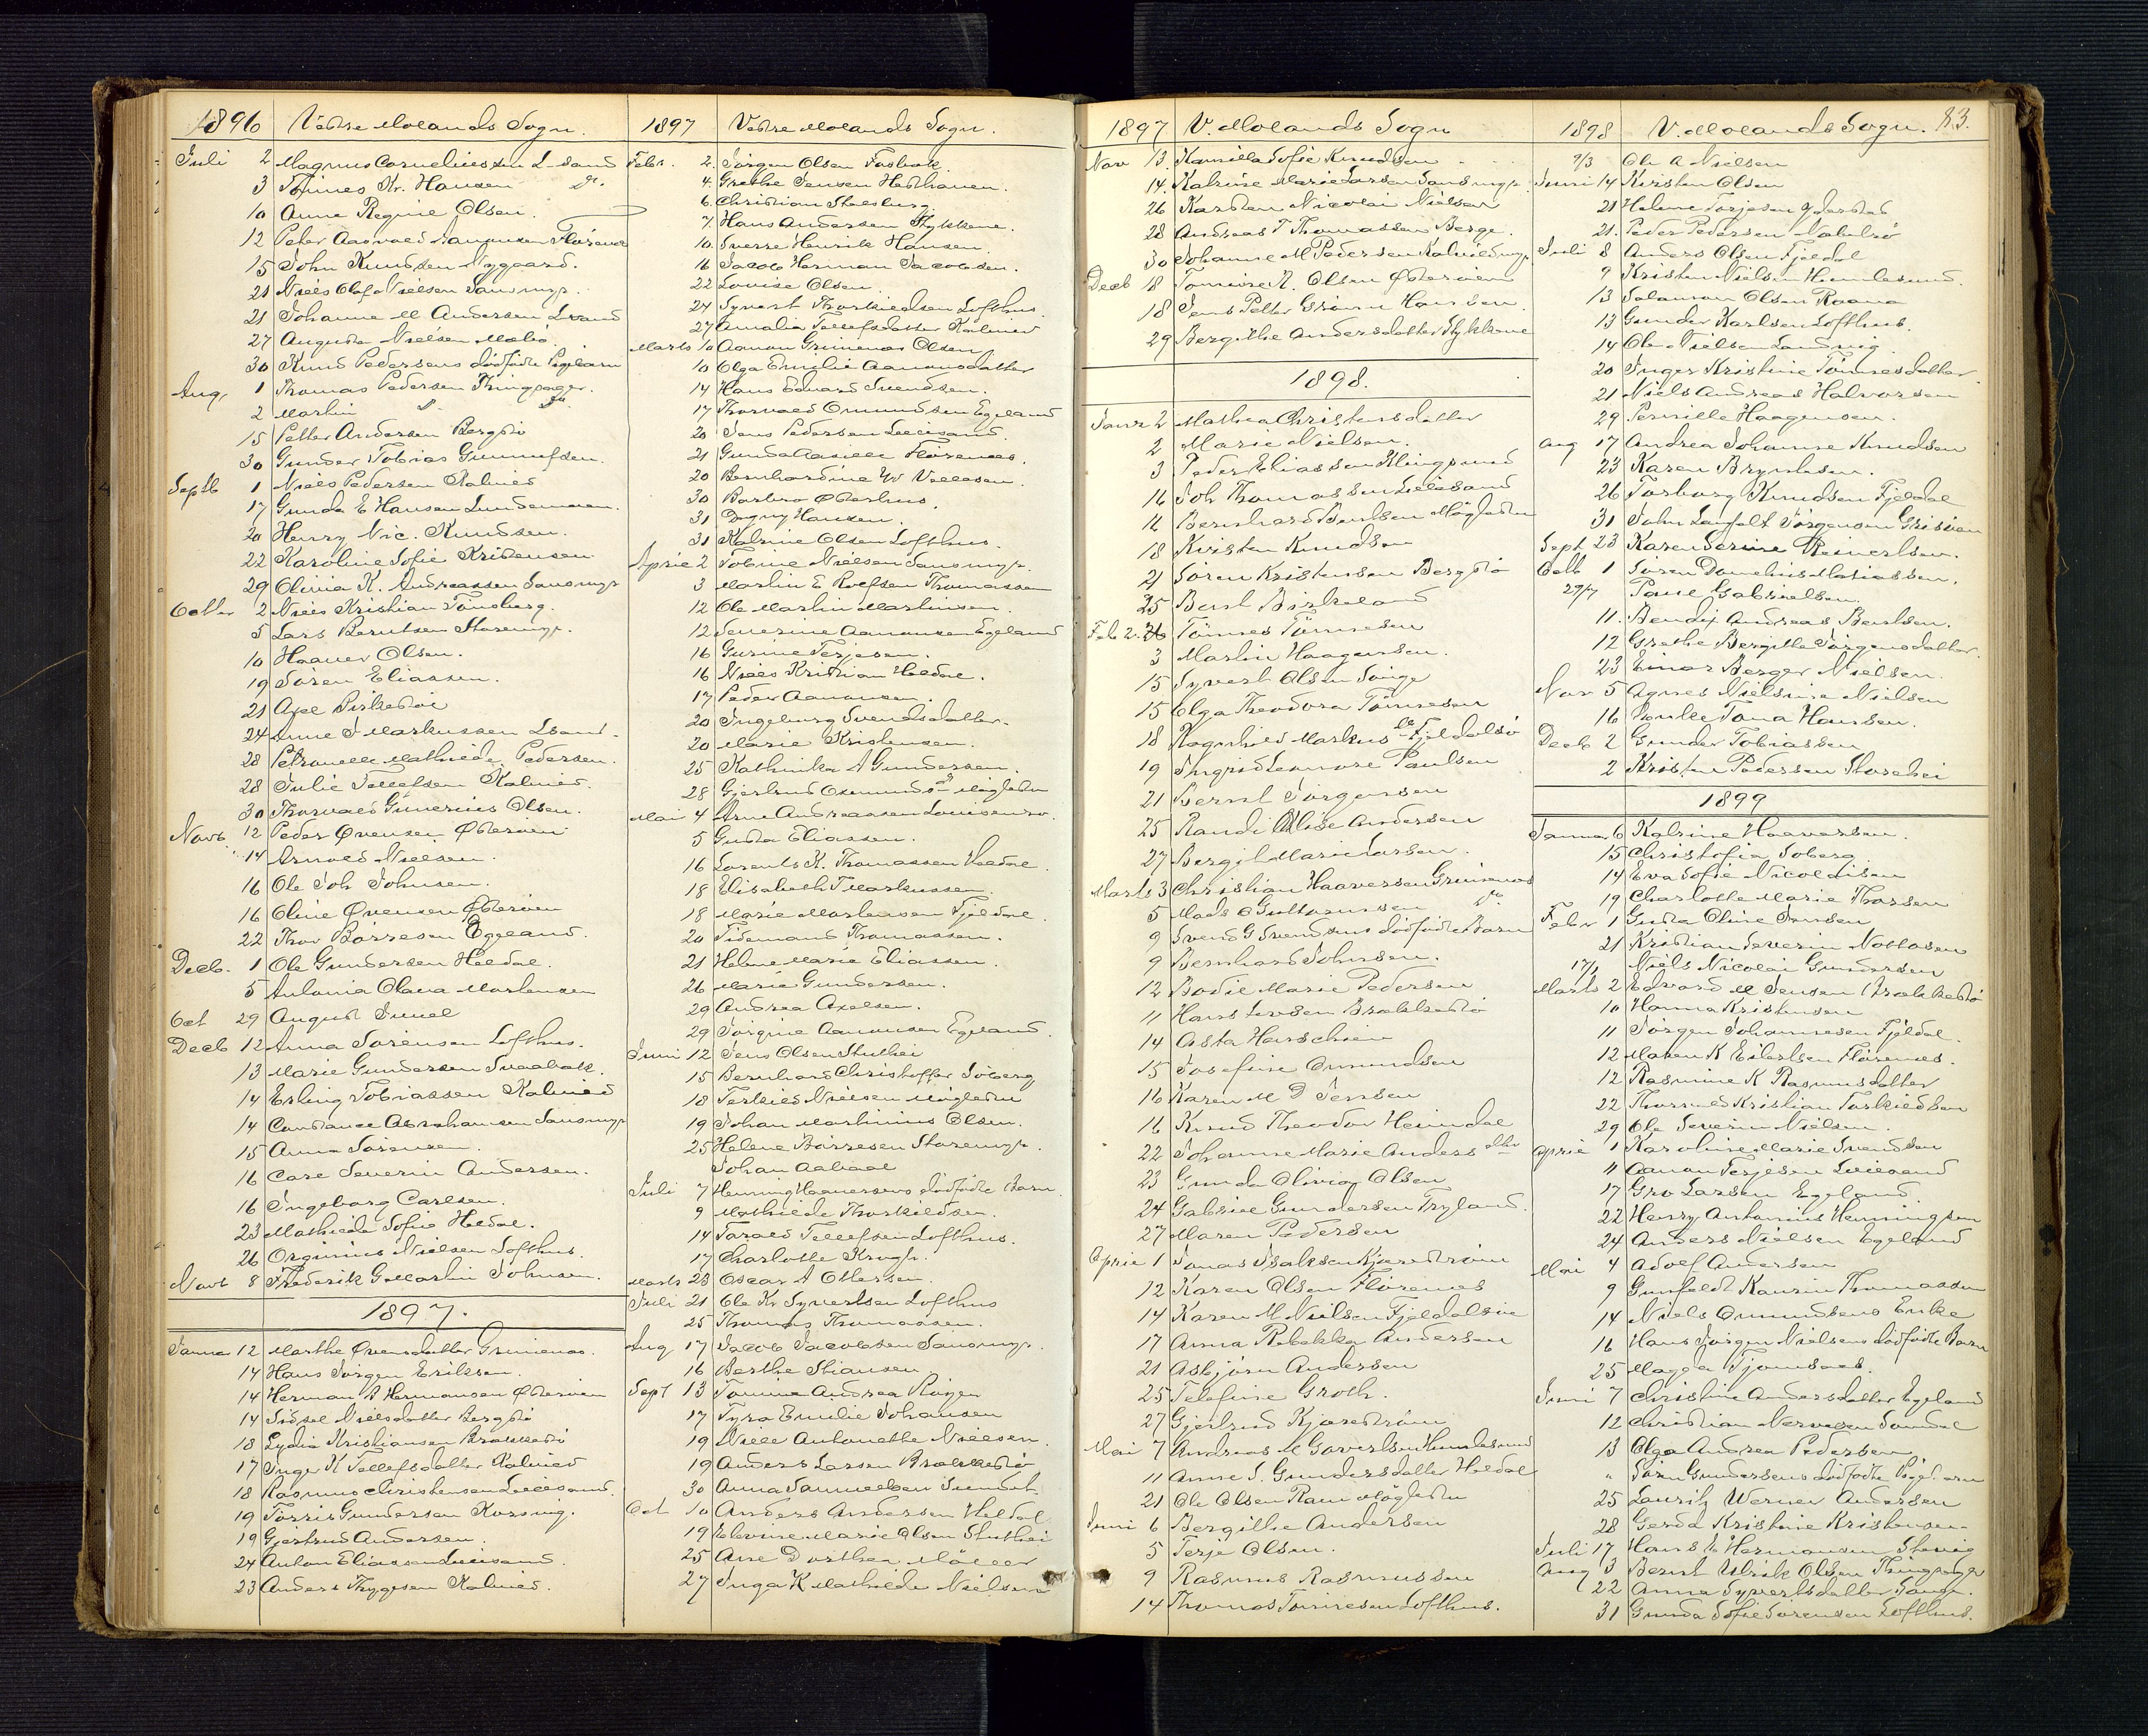 1896 Vestre Molands Sogn.
Juli 2 Magnus Corneliussen L-sand
3 Tønnes Kr. Hansen do.
10 Anne Regine Olsen.
12 Peter Aasvald Aanonsen Florenes
15 John Knudsen Nygaard.
21 Niels Olaf Nielsen Sandsmyr.
21 Johanne M Andersen L-sand
27 Augusta Nielsen Møbø.
30 Knud Pedersens dødfødte Pigebarn
Aug. 1 Thomas Pedersen Thingsager.
2 Martin do. do.
15 Petter Andersen Bergstø
30 Gunder Tobias Gunnufsen.
Septb 1 Niels Pedersen Kalvild
17 Gunda E Hansen Lundemoen.
20 Henry Nic. Knudsen.
22 Karoline Sofie Kristensen
29 Olivia K. Andreassen Sandsmyr
Octbr 2 Niels Kristian Tønsberg.
5 Lars Berntsen Storemyr.
10 Haaver Olsen.
19 Søren Eliassen.
21 Axel Birkedal
24 Anne I Markussen Lsand.
28 Petronelle Mathilde Pedersen.
28 Julie Tellefsen Kalvild.
30 Thorvald Gunerius Olsen.
Novb. 12 Peder Øvensen Østerøien
14 Arnold Nielsen.
16 Ole Joh Johnsen.
16 Oline Øvensen Østerøien
22 Thor Børresen Egeland.
Decb. 1 Ole Gundersen Heldal.
5 Antonia Olava Mortensen
Oct 29 August Juul
Decb 12 Anna Sørensen Lofthus.
13 Marie Gundersen Svaabæk.
14 Erling Tobiassen Kalvild
14 Constance Abrahamsen Sandsmyr
15 Anna Sørensen.
16 Carl Severin Andersen.
16 Ingeborg Carlsen.
23 Mathilde Sofie Heldal.
26 Orginius Nielsen Lofthus.
Novb 8 Frederik G Martin Johnsen.
1897.
Januar 12 Marthe Øvensdatter Grimenes.
14 Hans Jørgen Eriksen.
14 Herman A Hermansen Østerøien
14 Sidsel Nielsdatter Bergstø
18 Lydia Kristiansen Brækkestø
17 Inger K Tellefsdatter Kalvild
18 Rasmus Christensen Lillesand.
19 Tørris Gundersen
19 Gjertrud Andersen
24 Anton Eliassen Lillesand.
23 Anders Thygesen Kalvild.
1897 Vestre Molands Sogn.
Febr. 2. Jørgen Olsen Fosbæk
4. Grethe Jensen Hesthaven.
6. Christian
7. Hans Andersen Stykkene.
10. Sverre Henrik Hansen.
16 Jacob Herman Jacobsen.
22 Lovise Olsen.
24 Syvert Thorkildsen Lofthus.
27 Amalia Tellefsdatter Kalvild
Marts 10 Aanon Grimenes Olsen
10 Olga Emilie Aanonsdatter
14 Hans Edvard Svendsen.
17 Thorvald Omundsen Egeland
20 Jens Pedersen Lillesand.
21 Gunda Aaselle Florenes.
20 Bernhardine W Vellesen.
30 Barbro Østerhus.
31 Dagny Hansen.
31 Katrine Olsen Lofthus.
April 2 Tobine Nielsen Sandsmyr.
3 Martin E Rolfsen Thomassen
12 Ole Martin Martinsen.
12 Severine Aanonsen Egeland
16 Gurine Terjesen.
16 Niels Kristian Heldal.
17 Peder Aanonsen.
20 Ingeborg Svendsdatter.
20 Marie Kristensen.
25 Kathinka A Gundersen.
28 Gjertrud Osmundsdr Møglestu
Mai 4 Arne Andreassen Louisenro.
5 Gusta Eliassen.
16 Lorents K. Thomassen Heldal.
18 Elisabeth T Markussen.
18 Marie Mortensen Fjeldal.
20 Tidemand Thomassen.
21 Helene Marie Eliassen.
26 Marie Gundersen.
29 Andrea Axelsen.
29 Jørgine Aanonsen Egeland.
Juni 12 Jens Olsen Stuthei
15 Bernhard Christoffer Soberg
18 Terkild Nielsen Møglestu
19 Johan Martinius Olsen.
25 Helene Børresen Storemyr.
Johan Aabaal
Juli 7 Henning Haaversens dødfødte Barn.
9 Mathilde Thorkildsen.
14 Tarald Tellefsen Lofthus.
17 Charlotte Krogh.
Marts 23 Oscar A Ottersen.
Juli 21 Ole Kr Syvertsen Lofthus
25 Thomas Thomassen.
Aug 17 Jacob Jacobsen Sandsmyr.
16 Berthe Stiansen
Sept 13 Tomine Andrea Røiger
17 Tyra Emilie Johansen
19 Nille Antonette Nielsen.
19 Anders Larsen Brækkestø
30 Anna Samuelsen
Oct 10 Anders Andersen Heldal
19 Elevine Marie Olsen Stuthei
25 Ane Dorthea Møller
27 Inga K Mathilde Nielsen
1897 V. Molands Sogn
Nov 13. Kamilla Sofie Knudsen
14. Katrine Marie Larsen Sandsmyr.
26 Karsten Nicolai Nielsen
28 Andreas T Thomassen Berge.
30 Johanne M Pedersen Kalvildmyr
Decb 18 Tomine A. Olsen Østerøien
18 Jens Petter Grimm Hansen.
29 Bergithe Andersdatter Stykkene
1898.
Janr 2 Mathea Christensdatter
2 Marie Nielsen.
3 Peder Eliassen Klingsmed
16 Joh Thomassen Lillesand
16 Bernhard Berntsen Møglestu
18 Kristen Knudsen
21 Søren Kristensen Bergstø
25 Bernt Birkeland
Feb 2. 26 Tønnes Tønnesen
3 Martin Haagensen.
15 Syvert Olsen Songe
15 Olga Theodora Tønnesen
18 Ragnhild Markusdr Fjeldalsø
19 Ingrid Leonore Paulsen
21 Bernt Jørgensen
25 Randi Alise Andersen
27 Bergit Marie Larsen.
Marts 3 Christian Haaversen Grimenes
5 Mads O Guttormsen do
9 Svend G Svendsens dødfødte Barn
9 Bernhard Johnsen.
12 Bodil Marie Pedersen
11 Hans Iversen Brækkestø
14 Asta Herschien
15 Josefine Omundsen
16 Karen M D Jensen
16 Knud Theodor Heimdal
22 Johanne Marie Andersdtter
23 Gunda Olivia Olsen
24 Gabriel Gundersen Tryland.
27 Maren Pedersen
April 1 Jonas Isaksen Kjærestrøm
12 Karen Olsen Florenes
14 Karen M Nielsen Fjeldalsøie
17 Anna Rebekka Andersen
21 Asbjørn Andersen
25 Telefine Groth.
27 Gjertrud Kjærestrøm
Mai 7 Andreas M Govertsen Humlesund
11 Anne S. Gundersdatter Heldal
21 Ole Olsen Ram Møglestu
Juni 6 Bergithe Andersen
5 Terje Olsen.
9 Rasmus Rasmussen
14 Thomas Tønnesen Lofthus.
1898 V. Molands Sogn. 83.
7/3 Ole A Nielsen
Juni 14 Kirsten Olsen
21 Helene Torjesen Ydersted
21. Peder Pedersen Nabelsø
Juli 8 Anders Olsen Fjeldal
9 Kristen Nielsen Humlesund.
13 Salamon Olsen Raana
13 Gunder Karlsen Lofthus.
14 Ole Nielsen Landvig
20 Inger Kristine Tønnesdatter.
21 Niels Andreas Halvorsen
29 Pernille Haagensen.
Aug 17 Andrea Johanne Knudsen
23 Karen Brynhsen.
26 Torborg Knudsen Fjeldal
31 John Jørgensen Grisøen
Sept 23 Karen Serine Reinertsen.
Octb 1 Søren Danelius Matiassen.
29/7 Poul Gabrielsen.
11. Bendix Andreas Bentsen.
12 Grethe Bergitte Jørgensdatter.
23 Einar Berger Nielsen.
Nov 5 Agnes Nielsine Nielsen
16 Enke Tona Hansen.
Decb 2 Gunder Tobiassen
2 Kristen Pedersen Storehei
1899
Januar 6 Katrine Haaversen.
15 Christofia Soberg
14 Eva Sofie Nicolaisen
19 Charlotte Marie Thorsen
Febr 1 Gusta Oline Jensen
21 Kristian Severin Nottosen
17/1 Niels Nicolai Gundersen
Marts 2 Edvard M Jensen Brækkestø
10 Hanna Kristensen
11 Jørgen Johannesen Fjeldal.
12 Maren K Eilertsen Florenes.
12 Rasmine K Rasmusdatter
22 Thorvald Kristian Torkildsen
29 Ole Severin Nielsen.
April 1 Karoline Marie Svendsen
11 Aanon Terjesen Lillesand
17 Gro Larsen Egeland.
22 Henry Antonius Henningsen
24 Anders Nielsen Egeland
Mai 4 Adolf Andersen
9 Gunfeldt Kaurin Thomassen
14 Niels Omundsens Enke
16 Hans Jørgen Nielsens dødfødte Barn
25 Magda Tjomsaas.
Juni 7 Christine Andersdatter Egeland
12 Christian Nervesen Sandal
13 Olga Andrea Pedersen
" Søren Gundersens dødfødte Pigebarn
25 Lauritz Werner Andersen
28 Gerda Kristine Kristensen.
Juli 17 Hans Hermansen
Aug 3 Bernt Ulrik Olsen Thingsager
22 Anna Syvertsdatter Songe.
31 Gunda Sofie Sørensen Lofthus.